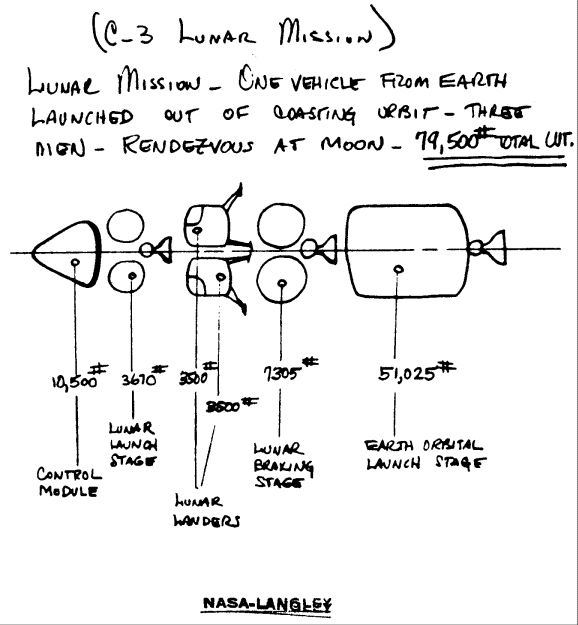 (C-3 LUNAR MISSION)
LUNAR MISSION - ONE VEHICLE FROM EARTH
LAUNCHED OUT OF COASTING ORBIT - THREE
MEN - RENDEZVOUS AT MOON - 79,500# TOTAL WT.
10,500# 3670# 3500# 7305# 51,025#
3500#
LUNAR
LAUNCH
STAGE
CONTROL
MODULE
LUNAR
LANDERS
LUNAR
BRAKING
STAGE
EARTH ORBITAL
LAUNCH STAGE
NASA-LANGLEY